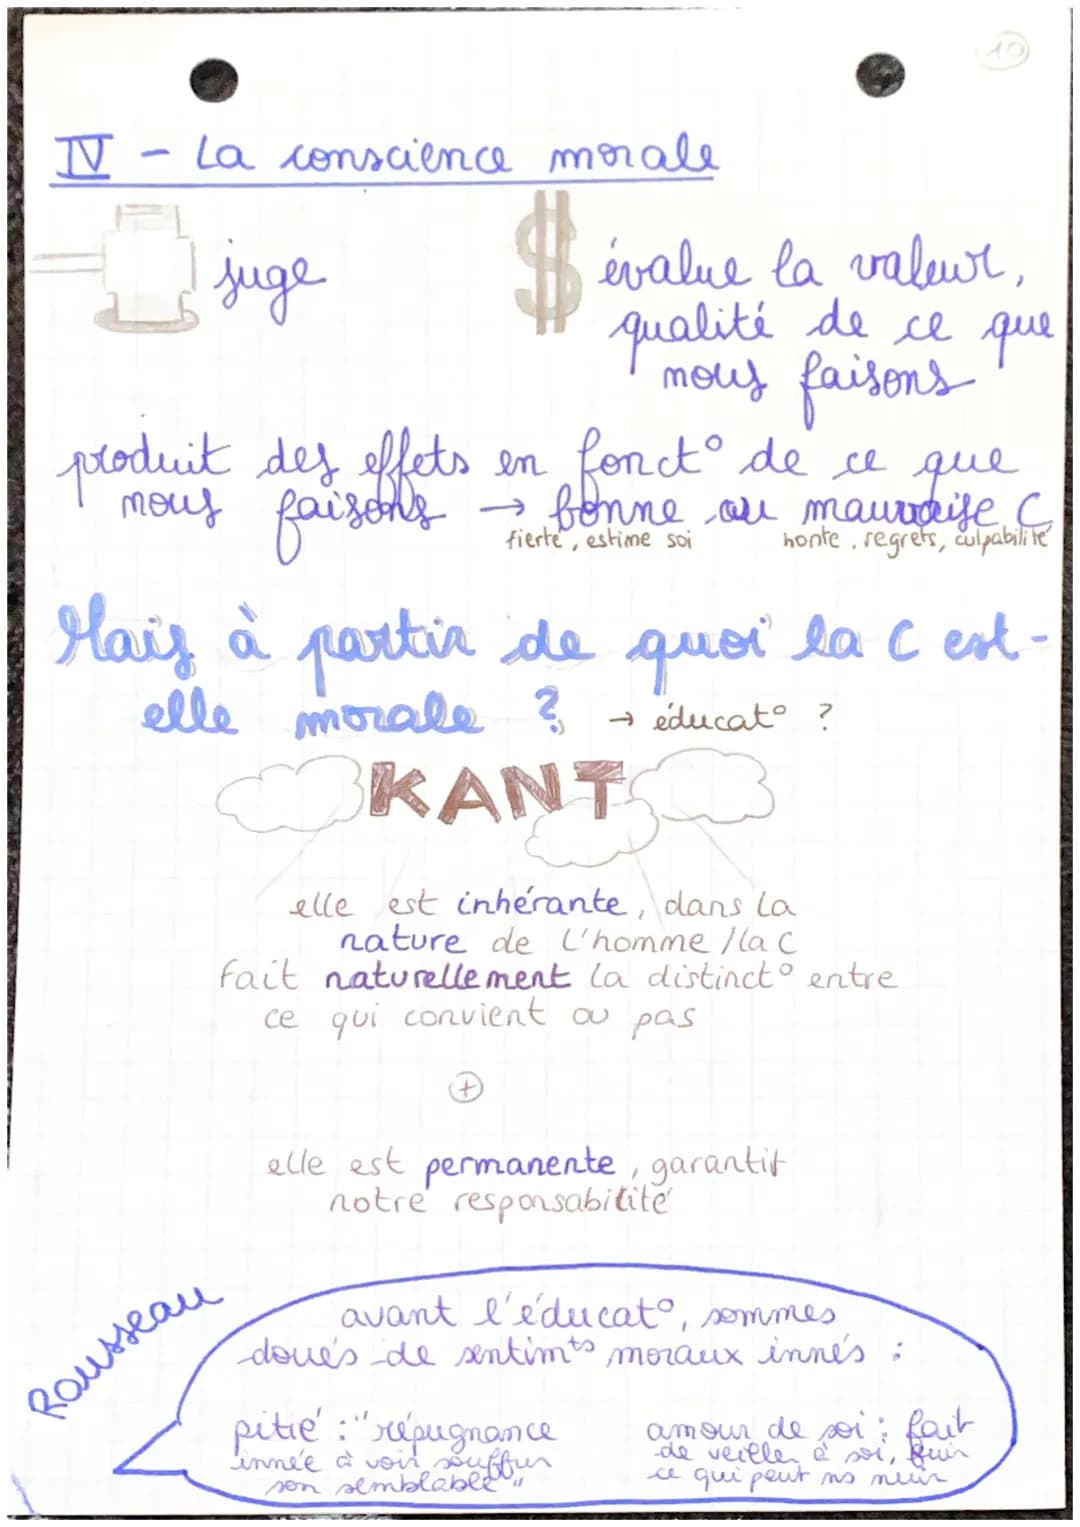 10
IV - La conscience morale
juge
évalue la valeur,
qualité de ce que
nous faisons
produit des effets en fonct° de ce que
nous faisons → bonne ou mauvaise C
fierté, estime soi
honte, regrets, culpabilité
Mais à partir de quoi la C est-
elle morale ? → éducat° ?
KANT
elle est inhérante, dans la
nature de l'homme / la C
fait naturellement la distinct° entre
ce qui convient ou pas
+
elle est permanente, garantit
notre responsabilité
Rousseau
avant l'éducat°, sommes
doués de sentimts moraux innés :
pitié : "répugnance
innée à voir souffrir
son semblable"
amour de soi : fait
de veiller à soi, fuir
ce qui peut ns nuir